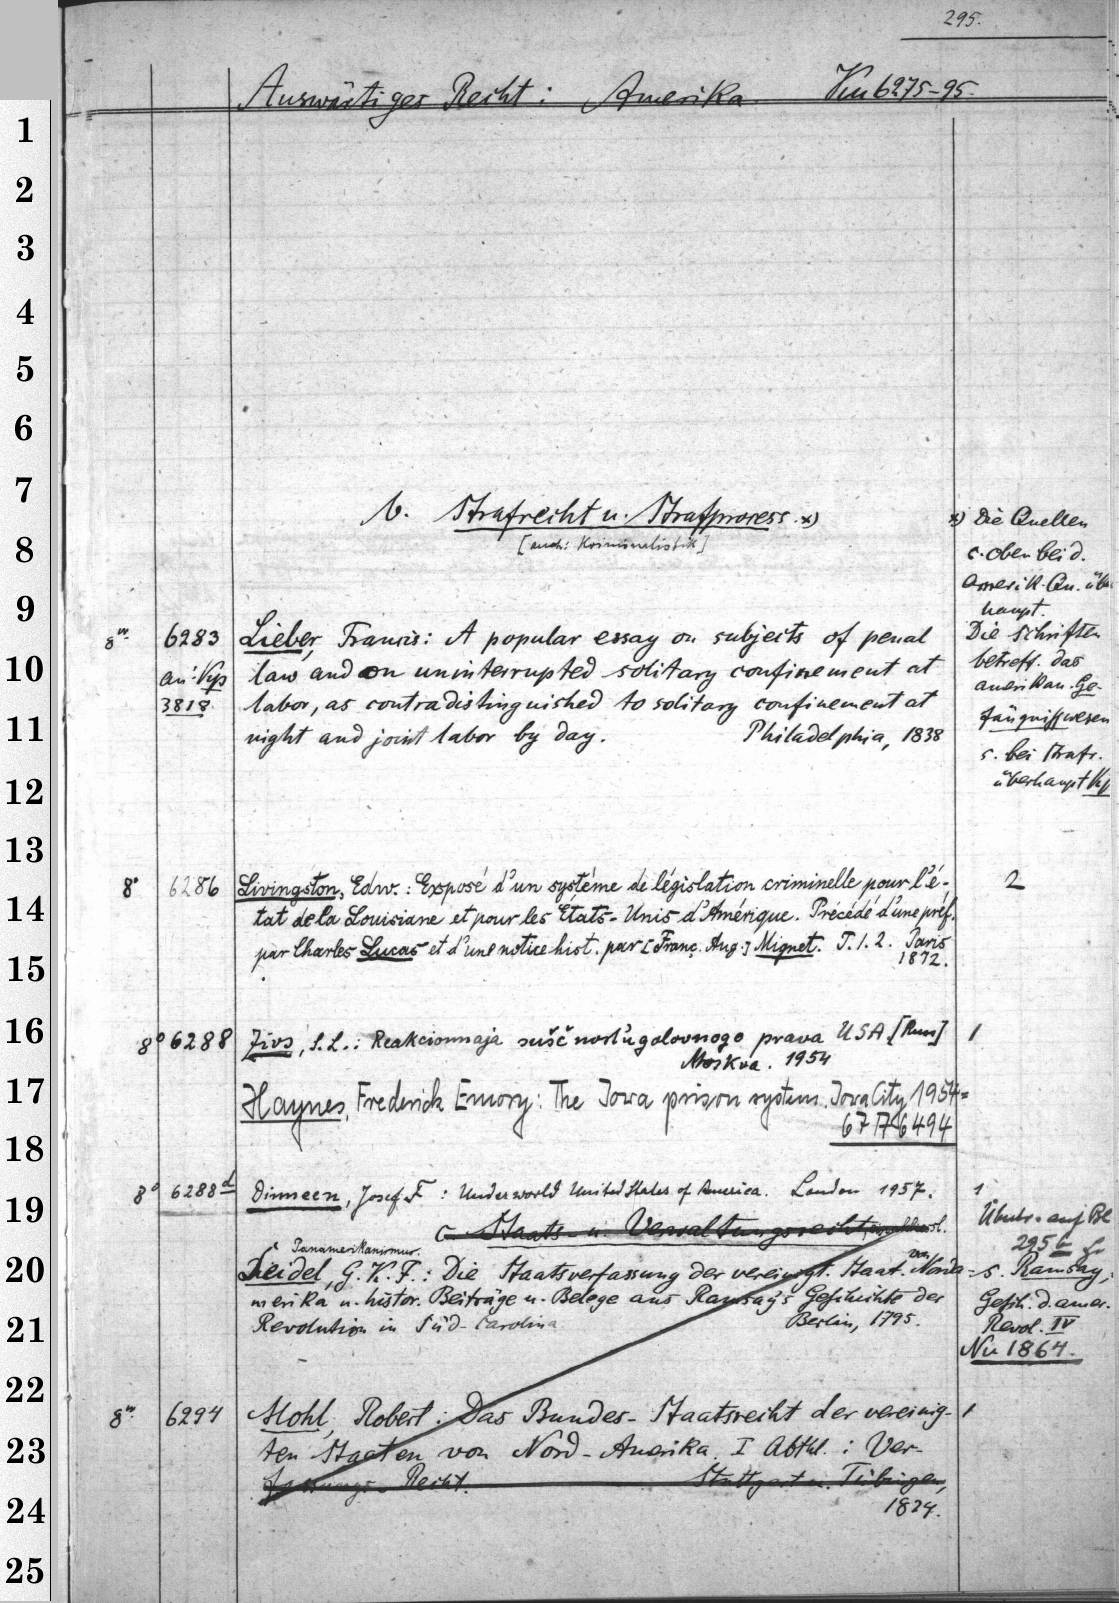 295.
Auswärtiges Recht: Amerika. Km 6275-95.
1
2
3
4
5
6
7
b. Strafrecht u. Strafprozess. x)
x) Die Quellen
8
[auch: Kriminalistik]
s. oben bei d.
amerik. Qu. über
9
haupt.
8° 6283 Lieber, Francis: A popular essay on subjects of penal
Die Schriften
10
an: Kp law and on uninterrupted solitary confinement at
betreff. das
amerikan. Ge-
3818 labor, as contradistinguished to solitary confinement at
11
fängnißwesen
night and joint labor by day. Philadelphia, 1838
s. bei Strafr.
12
überhaupt Kp
13
8° 6286 Livingston, Edw.: Exposé d'un système de législation criminelle pour l'é- 2
14
tat de la Louisiane et pour les Etats-Unis d'Amérique. Précédé d'une préf.
par Charles Lucas et d'une notice hist. par [Franç. Aug.] Mignet. T. 1. 2. Paris
15
1872.
16
8° 6288 Zivs, S. L.: Reakcionnaja suščnost' ugolovnogo prava USA. [Russ] 1
Moskva. 1954
17
Haynes, Frederick Emory: The Iowa prison system. Iowa City 1954=
67 A 6494
18
8° 6288d Dinneen, Josef F: Underworld United States of America. London 1957. 1
19
c Staats- u. Verwaltungsrecht,
Übertr. auf Bl
295
20
Panamerikanismus.
Seidel, G. K. F.: Die Staatsverfassung der vereinigt. Staat. von Norda-
s. Ramsay,
merika u. histor. Beiträge u. Belege aus Ramsay's Geschichte der
Gesch. d. amer.
21
Revolution in Süd-Carolina Berlin, 1795.
Revol. IV
Nu 1864.
22
8° 6294 Mohl, Robert: Das Bundes-Staatsrecht der vereinig- 1
23
ten Staaten von Nord-Amerika. I Abthl.: Ver-
fassungs-Recht. Stuttgart u. Tübingen,
24
1824.
25